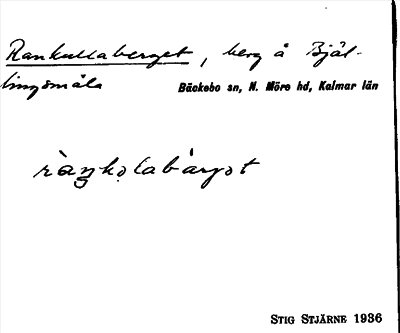 Rankullaberget, berg å Bjäl-
lingsmåla
Bäckebo sn, N. Möre hd, Kalmar län
STIG STJÄRNE 1936